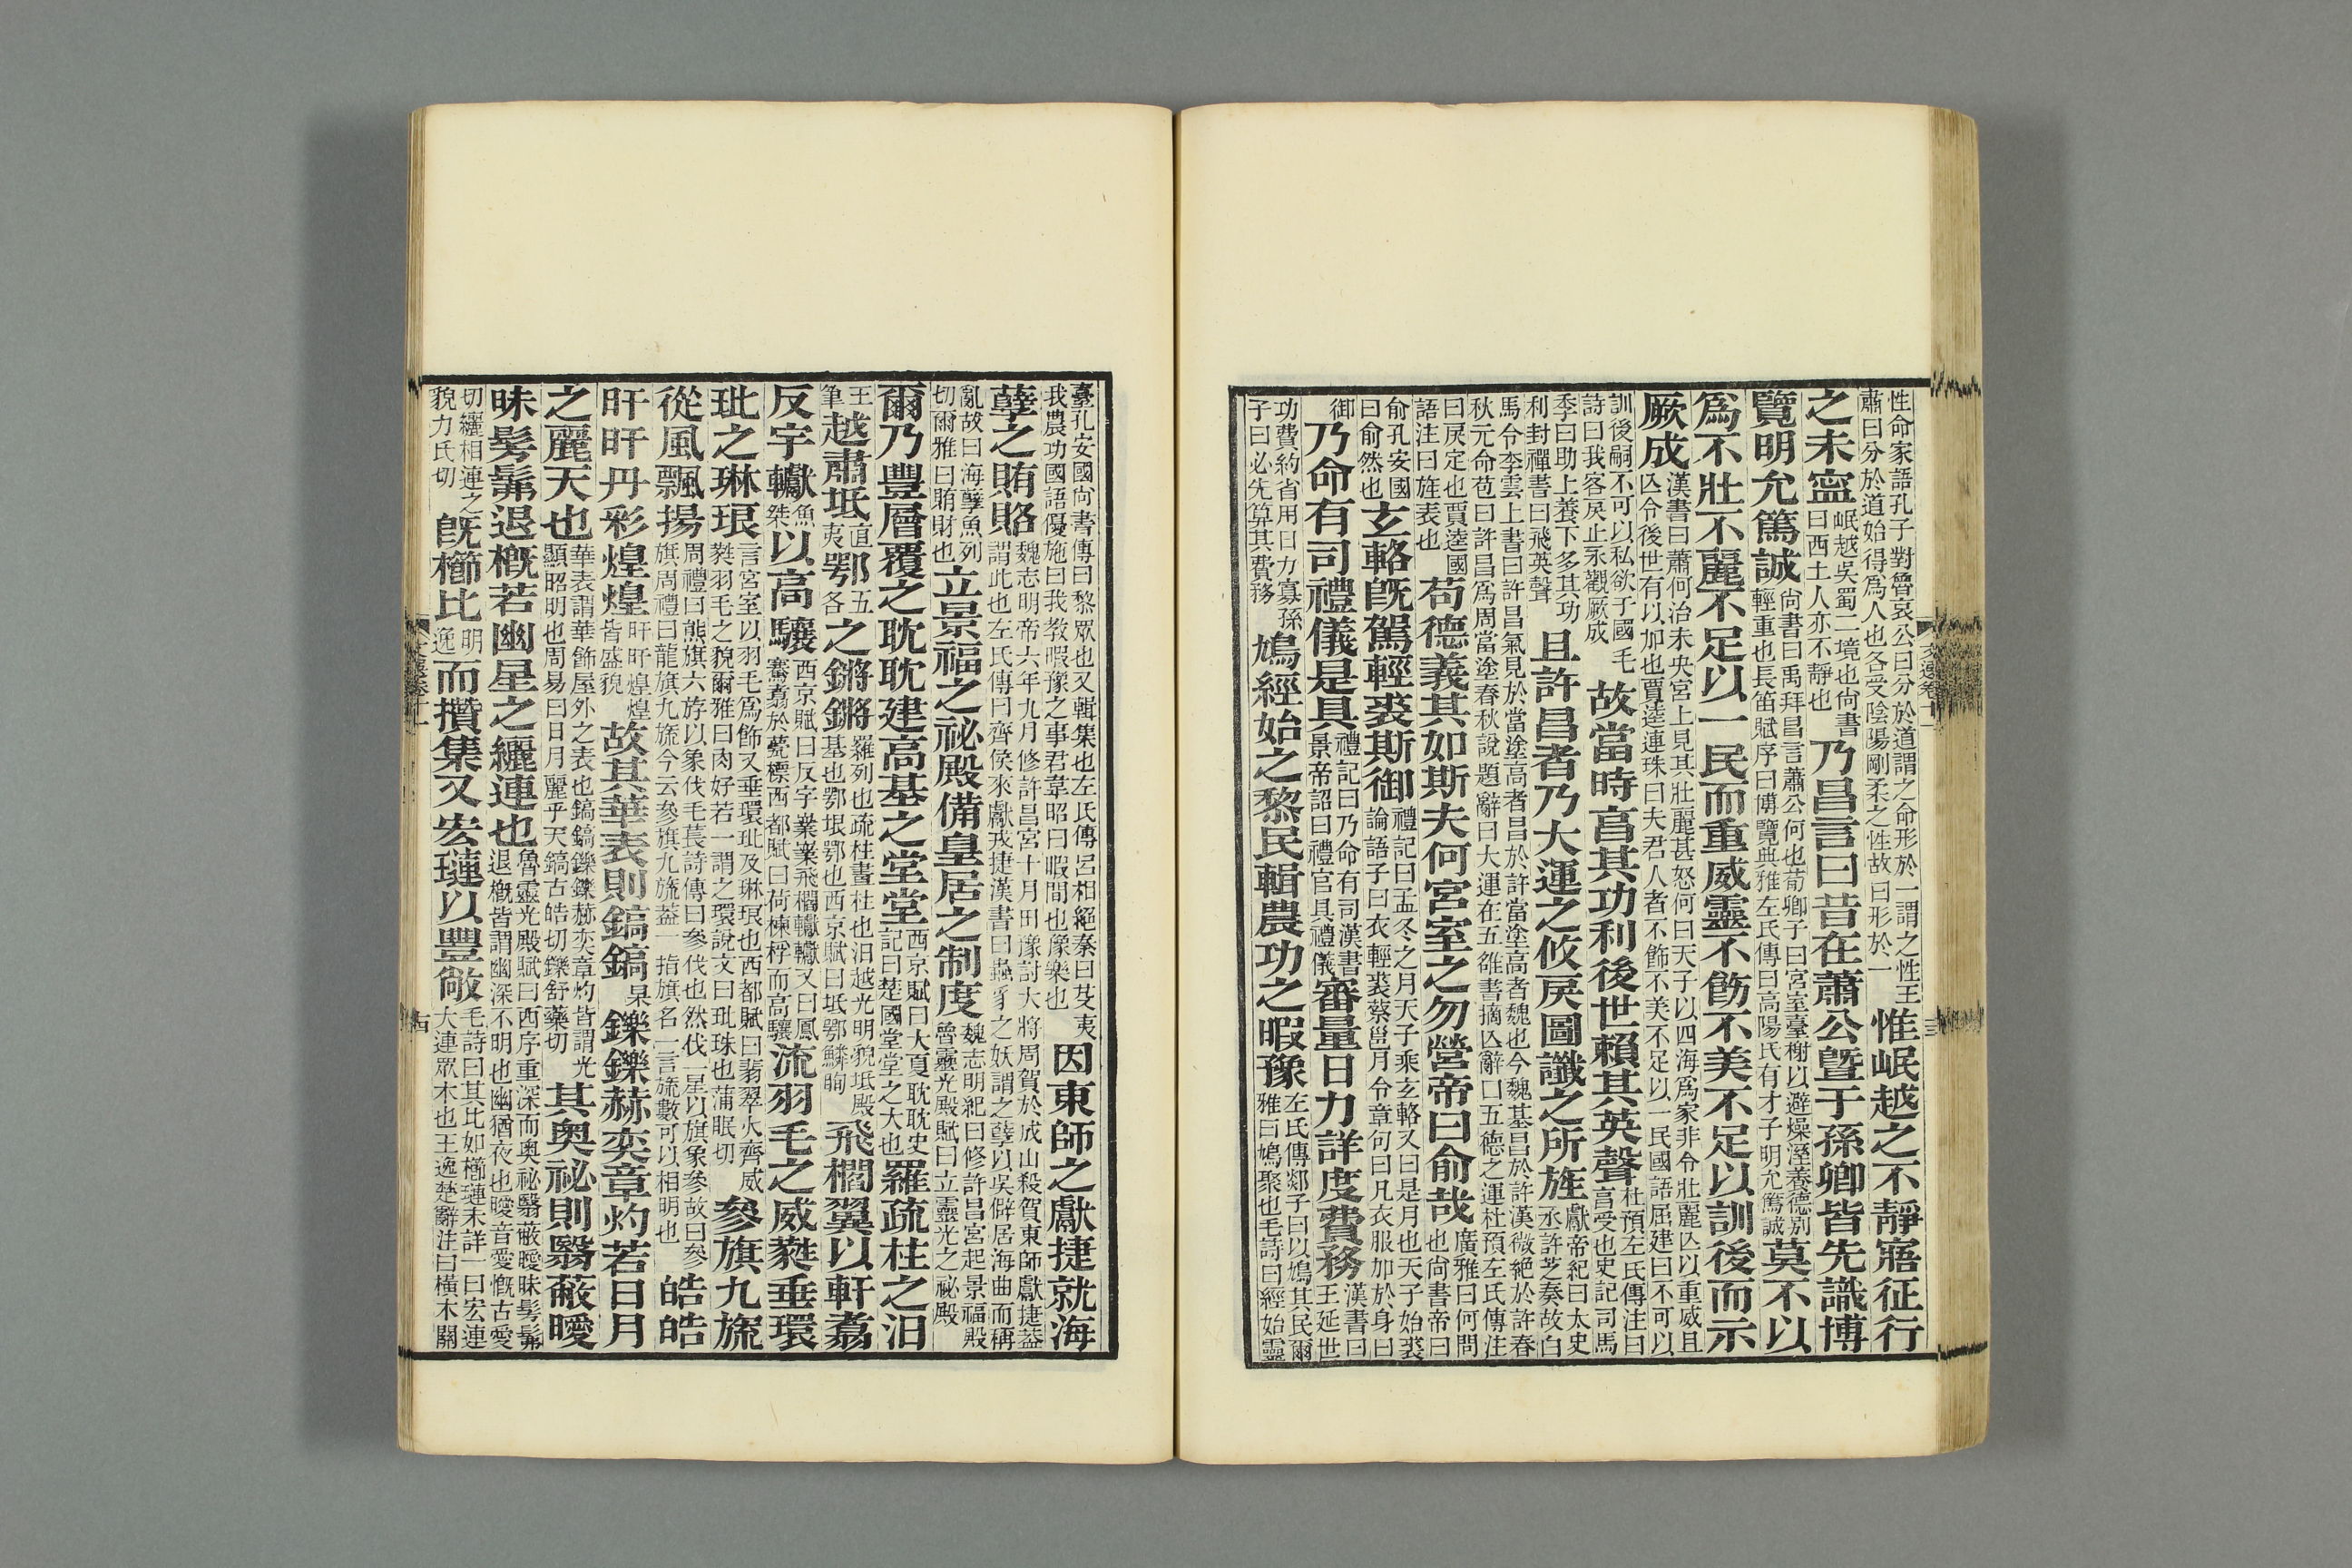 性命家語孔子對魯哀公曰分於道謂之命形於一謂之性王肅曰分於道始得爲人也各受陰陽剛柔之性故曰形於一惟岷越之不靜寤征行
之未寍岷越吳蜀二境也尚書曰西土人亦不靜也乃昌言曰昔在蕭公曁于孫卿皆先識博
覽明允篤誠尚書曰禹拜昌言蕭公何也荀卿子曰宮室臺榭以避燥溼養德別輕重也長笛賦序曰博覽典雅左氏傳曰高陽氏有才子明允篤誠莫不以
爲不壯不麗不足以一民而重威靈不飭不美不足以訓後而示
厥成漢書曰蕭何治未央宮上見其壯麗甚怒何曰天子以四海爲家非令壯麗亡以重威且亡令後世有以加也賈逵連珠曰夫君人者不飾不美不足以一民國語屈建曰不可以
訓後嗣不可以私欲干國毛詩曰我客戾止永觀厥成故當時享其功利後世賴其英聲杜預左氏傳注曰享受也史記司馬
季曰助上養下多其功利封禪書曰飛英聲且許昌者乃大運之攸戾圖讖之所旌獻帝紀曰太史丞許芝奏故白
馬令李雲上書曰許昌氣見於當塗高者昌於許當塗高者魏也今魏基昌於許漢微絶於許春秋元命苞曰許昌爲周當塗春秋說題辭曰大運在五雒書摘亡辭曰五德之運杜預左氏傳注
曰戾定也賈逵國語注曰旌表也苟德義其如斯夫何宮室之勿營帝曰俞哉廣雅曰何問也尚書帝曰
俞孔安國曰俞然也玄輅旣駕輕裘斯御禮記曰孟冬之月天子乘玄輅又曰是月也天子始裘論語子曰衣輕裘蔡邕月令章句曰凡衣服加於身曰
御乃命有司禮儀是具禮記曰乃命有司漢書景帝詔曰禮官具禮儀審量日力詳度費務漢書曰王延世
功費約省用日力寡孫子曰必先算其費務鳩經始之黎民輯農功之暇豫左氏傳郯子曰以鳩其民爾雅曰鳩聚也毛詩曰經始靈
臺孔安國尚書傳曰黎眾也又輯集也左氏傳呂相絕秦曰芟夷我農功國語優施曰我教暇豫之事君韋昭曰暇間也豫樂也因東師之獻捷就海
孽之賄賂魏志明帝六年九月修許昌宮十月田豫討大將周賀於成山殺賀東師獻捷蓋謂此也左氏傳曰齊侯來獻戎捷漢書曰蟲豸之妖謂之孽以吳僻居海曲而稱
亂故曰海孽魚列切爾雅曰賄財也立景福之祕殿備皇居之制度魏志明紀曰修許昌宮起景福殿魯靈光殿賦曰立靈光之祕殿
爾乃豐層覆之耽耽建高基之堂堂西京賦曰大夏耽耽史記曰楚國堂堂之大也羅疏柱之汨
越肅坻直夷鄂五各之鏘鏘羅列也疏柱畫柱也汨越光明貌坻殿基也鄂垠鄂也西京賦曰坻鄂鱗眴飛櫩翼以軒翥
反宇𨎶魚桀以高驤西京賦曰反宇業業飛櫩𨎶𨎶又曰鳳騫翥於甍標西都賦曰荷棟桴而高驤流羽毛之威蕤垂環
玭之琳琅言宮室以羽毛爲飾又垂環玭及琳琅也西都賦曰翡翠火齊威蕤羽毛之貌爾雅曰肉好若一謂之環說文曰玭珠也蒲眠切參旗九旒
從風飄揚周禮曰熊旗六斿以象伐毛萇詩傳曰參伐也然伐一星以旗象參故曰參旗周禮曰龍旗九旒今云參旗九旒蓋一指旗名一言旒數可以相明也皓皓
旰旰丹彩煌煌旰旰煌煌皆盛貌故其華表則鎬鎬杲鑠鑠赫奕章灼若日月
之麗天也華表謂華飾屋外之表也鎬鎬鑠鑠赫奕章灼皆謂光顯昭明也周易曰日月麗乎天鎬古皓切鑠舒藥切其奧祕則翳蔽曖
昧髣髴退概若幽星之纚連也魯靈光殿賦曰西序重深而奧祕翳蔽曖昧髣髴退概皆謂幽深不明也幽猶夜也曖音愛慨古愛
切纚相連之貌力氏切旣櫛比而攢集又宏璉以豐敞毛詩曰其比如櫛璉未詳一曰宏連大連眾木也王逸楚辭注曰橫木關
文選卷十一